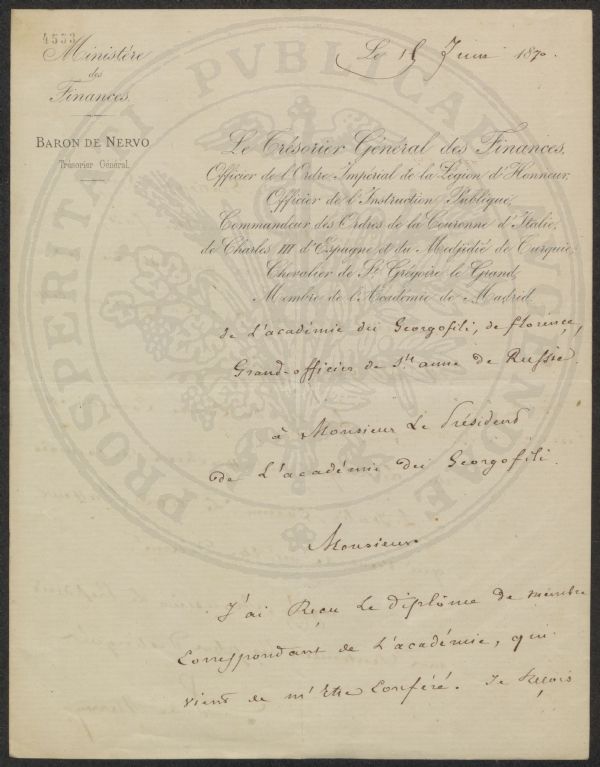 4533
Ministère
des
Finances.
BARON DE NERVO
Trésorier Général.
Le 15 Juin 1870.
Le Trésorier Général des Finances,
Officier de l'Ordre Impérial de la Légion d'Honneur,
Officier de l'Instruction Publique,
Commandeur des Ordres de la Couronne d'Italie,
de Charles III d'Espagne et du Medjidié de Turquie,
Chevalier de St. Grégoire le Grand,
Membre de l'Académie de Madrid
de L'académie dei Georgofili, de florence,
Grand-officier de Ste anne de Russie.
à Monsieur Le Président
de L'académie dei Georgofili.
Monsieur
J'ai Reçu Le diplôme de membre
Correspondant de L'académie, qui
vient de m'Etre Conféré. Je Reçois
PROSPERITATI PVBLICAE AVGENDAE